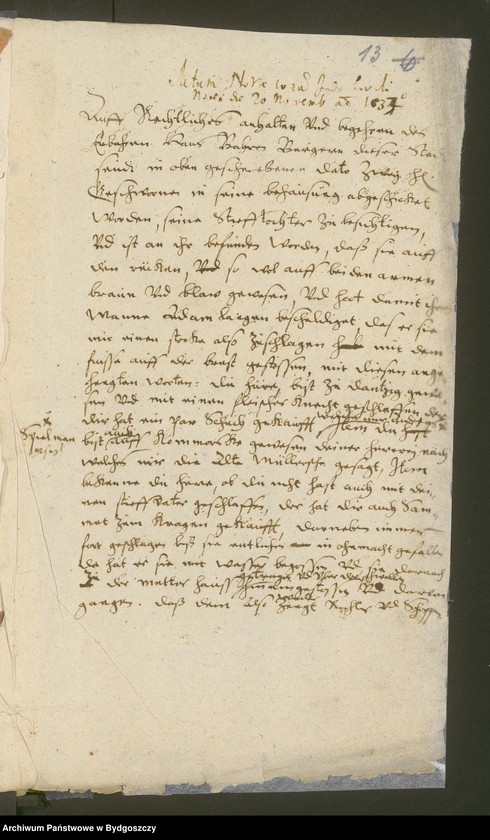 13
Actum Nove
Novi die 20 Novemb aō 1634
Auff Rechtliches anhalten Vnd begehren des
Erbahren Hans Bahres Burgern dieser Stat
sendt in oben geschriebenen dato zweÿ H.
Geschworne in seine behausung abgeschicket
worden, seine Stefftochter zu besichtigen,
Vnd ist an ihr befunden worden, daß sie auff
den rücken, so wol auff beiden armen
braun Vnd blaw gewesen, Vnd hat damit ihren
Manne Adam Largen beschuldiget, das er sie
mit einen stocke also zuschlagen mit dem
fusse auff der brust gestossen, mit diesen ange
hengten worten: du hure, bist zu Dantzig gewe
sen Vnd mit einen fleischer Knecht geschlaffen, der
dir hat ein par Schuch gekaufft, Item du
Spielman
bist auch auff Kommorske gewesen deiner hurereÿ nach
welches mir die Alte Müllersche gesagt, Item
bekenne du hure, ob du nicht hast auch mit dei-
nen stieff Vater geschlaffen, der hat dir auch Sam-
met zum Kragen gekaufft, darneben immer
fort geschlagen biß sie entlichen in ohnmacht gefallen
da hat er sie mit wasser begossen Vnd sie darnach
in der mutter hauss Vnd über die schwelle
gestossen Vnd darvon
gangen. daß dem also zeugt Richter Vnd Schöpff
Archiwum Państwowe w Bydgoszczy